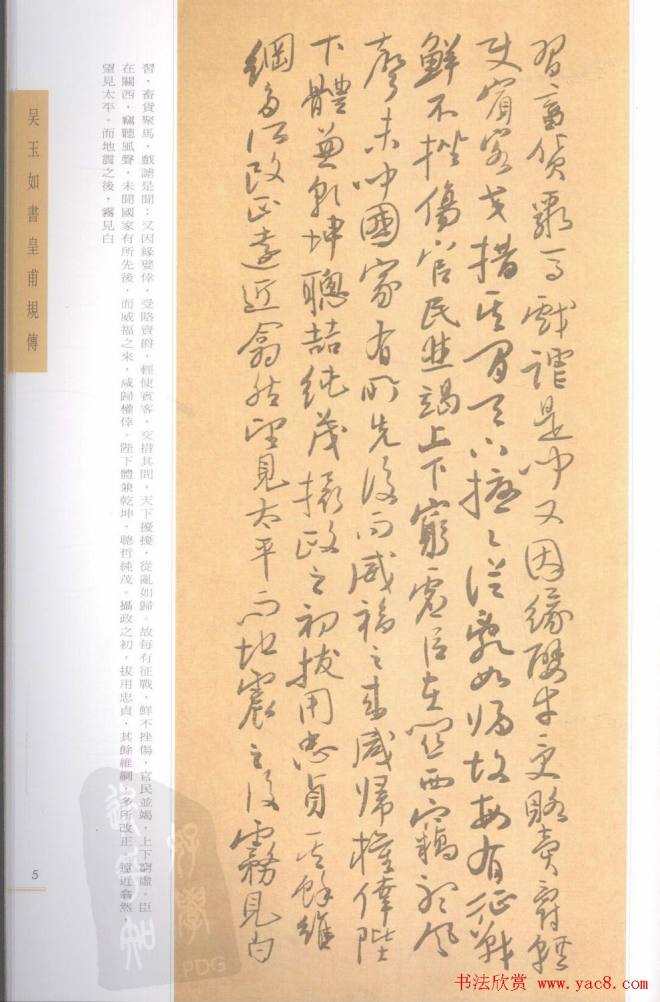 習畜貨聚馬戲謔是聞又因緣嬖幸受賂賣爵輕
使賓客交措其間天下擾々從亂如歸故每有征戰
鮮不挫傷官民並竭上下窮虛臣在關西竊聽風
聲未聞國家有所先後而威福之來咸歸權倖陛
下體兼乾坤聰喆純茂攝政之初拔用忠貞其餘維
綱多所改正遠近翕然望見太平而地震之後霧見白
習，畜貨聚馬，戲謔是聞；又因緣嬖倖，受賂賣爵，輕使賓客，交措其問，天下擾擾，從亂如歸。故每有征戰，鮮不挫傷，官民並竭，上下窮虛。臣
在關西，竊聽風聲，未聞國家有所先後，而威福之來，咸歸權倖。陛下體兼乾坤，聰哲純茂。攝政之初，拔用忠貞，其餘維綱，多所改正。遠近翕然，
望見太平。而地震之後，霧見白
吴玉如書皇甫規傳
5
PDG
书法欣赏 www.yac8.com